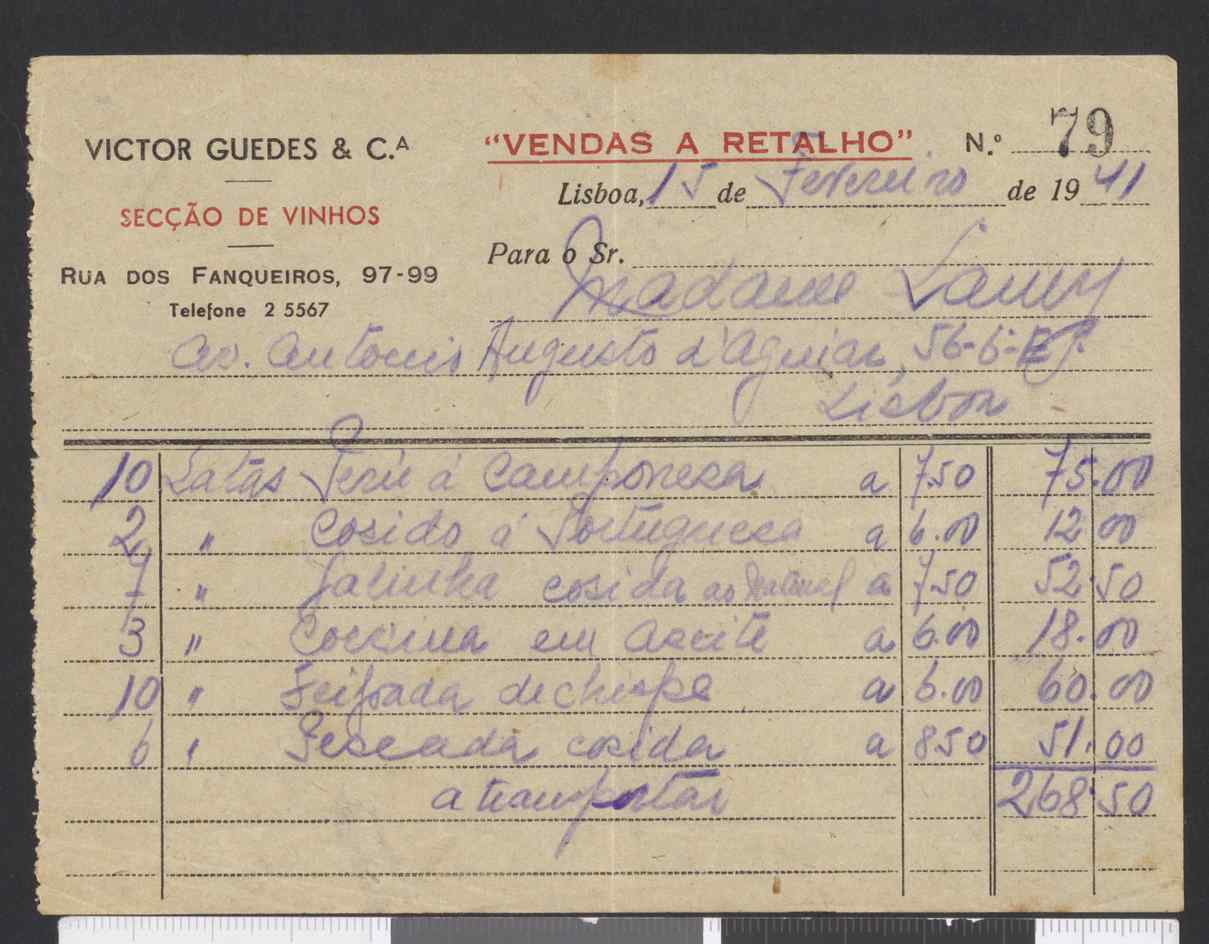 VICTOR GUEDES & C.A
SECÇÃO DE VINHOS
RUA DOS FANQUEIROS, 97-99
Telefone 2 5567
"VENDAS A RETALHO" N.º 79
Lisboa, 15 de Fevereiro de 1941
Para o Sr. Madame
Av. Antonio Augusto d'Aguiar, 56-6º-
Lisboa
10 Latas Perú á Camponesa a 7.50 75.00
2 " Cosido á Portuguesa a 6.00 12.00
7 " Galinha cosida ao natural a 7.50 52.50
3 " em aseite a 6.00 18.00
10 " Feijoada de chispe a 6.00 60.00
6 " Pescada cosida a 8.50 51.00
a transportar 268.50